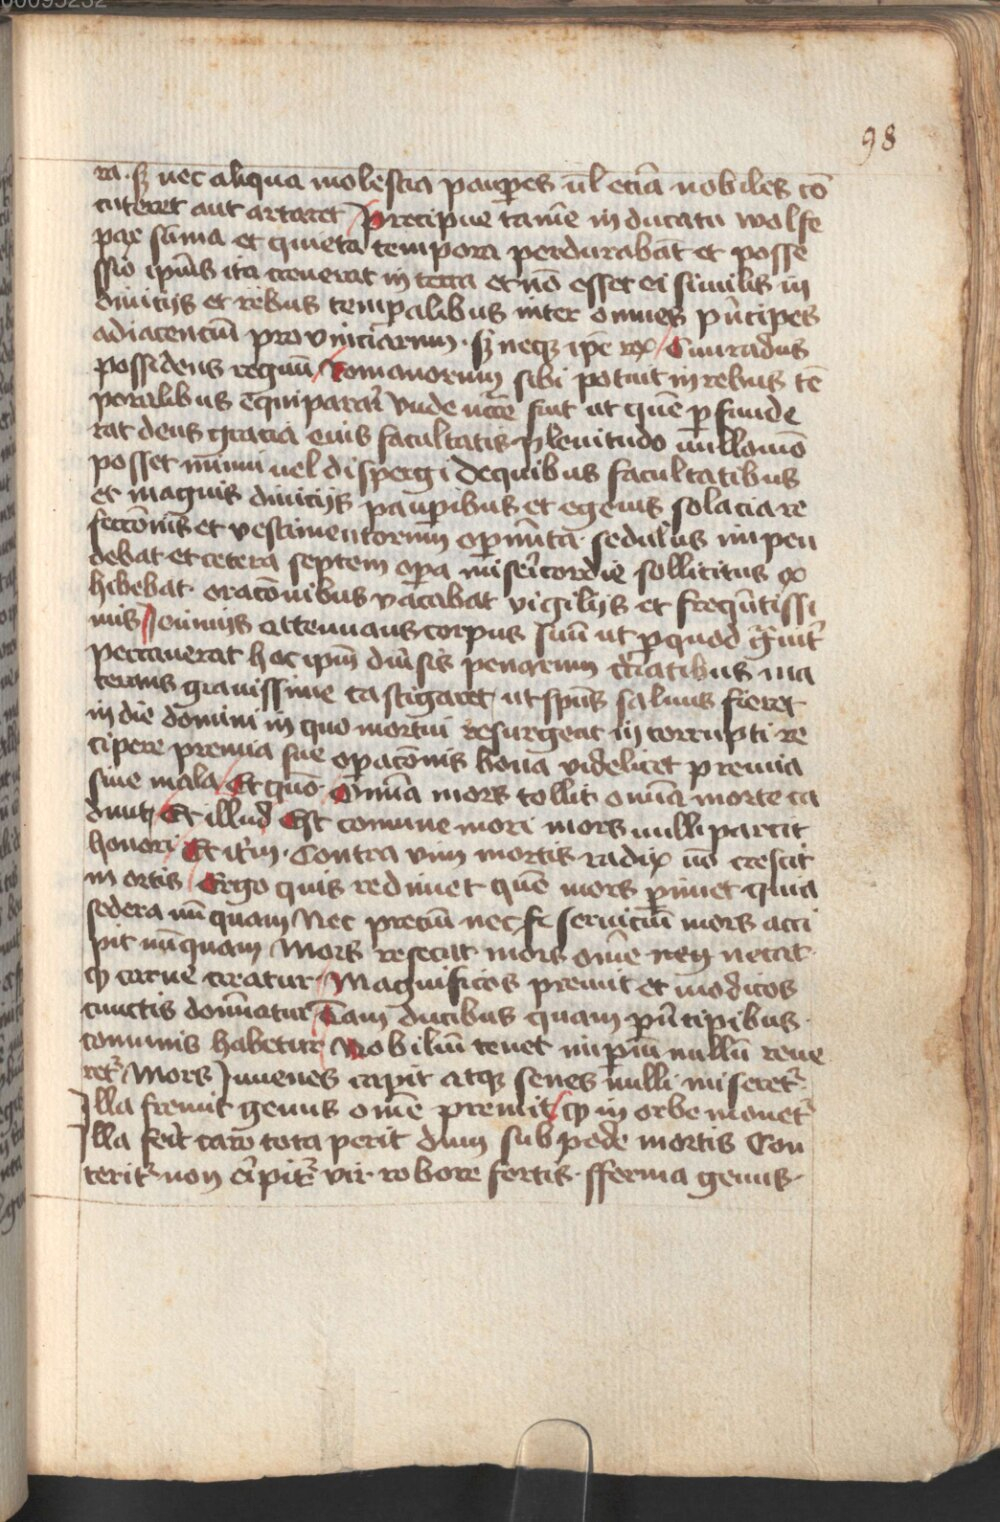 00095232
98
ra · sz nec aliqua molestia paup̲es ul̄ etiā nobiles cō
cuteret aut artaret Precipue tamē in ducatu wolfe
pax sūma et quieta tempora perdurabāt et posse
ssio ip̄ius ita creuerat in terra et nō esset ei similis in
diuicijs et rebus temp̲alibus inter omnes pn̄cipes
adiacenciū prouinciarum · sz neqz ip̄e rex Cunradus
possidens regnū Romanorum sibi potuit in rebus tē
poralibus equiparari Vnde nēcē fuit ut quē p̲fude
rat deus gracia euis facultatis plenitudo nullomō
posset minui uel dispergi de quibus facultatibus
et magnis diuicijs paup̲ibus et egenis solacia re
fecc̄onis et vestimentorum op̲im̄ta sedulus impen
debat et cetera septem op̲a miscordie sollicitus ex
hibebat · orac̄onibus vacabat vigilijs et freqn̄tissi
mis Jeiunijs attenuans corpus suū ut p̲ quod gͣuit̄
peccauerat hoc ipm̄ diu̓sis penarum ma
cerans grauissime castigaret ut spūs saluus fieret
in die domini in quo mortui resurgent in corrupti re
cipere premia sue op̲ac̄onis bona videlicet premia
siue mala Et quō Om̄ia mors tollit omīa morte ca
dunt Et illud Est comune mori mors nulli parcit
honori Et itm̄ · Contra vim mortis radix nō crescit
in ortis Ergo quis redimet quē mors p̲imet quia
federa nūquam Nec preciū nec servicium mors acci
pit nūquam Mors resecat mors omē necat
qz carne creatur Magnificos premit et modicos
cunctis domīatur Tam ducibus quam pn̄cipibus ·
comunis habetur Nobiliū tenet impiū nullū reue
ret᷑ Mors Juuenes rapit atqz senes nulli miseret᷑
Illa fremit genus omē premit qz in orbe monet᷑
Illa ferit caro tota perit dum sub pede mortis Con
terit᷑ non eripit᷑ vir robore fortis · fferrea genus ·